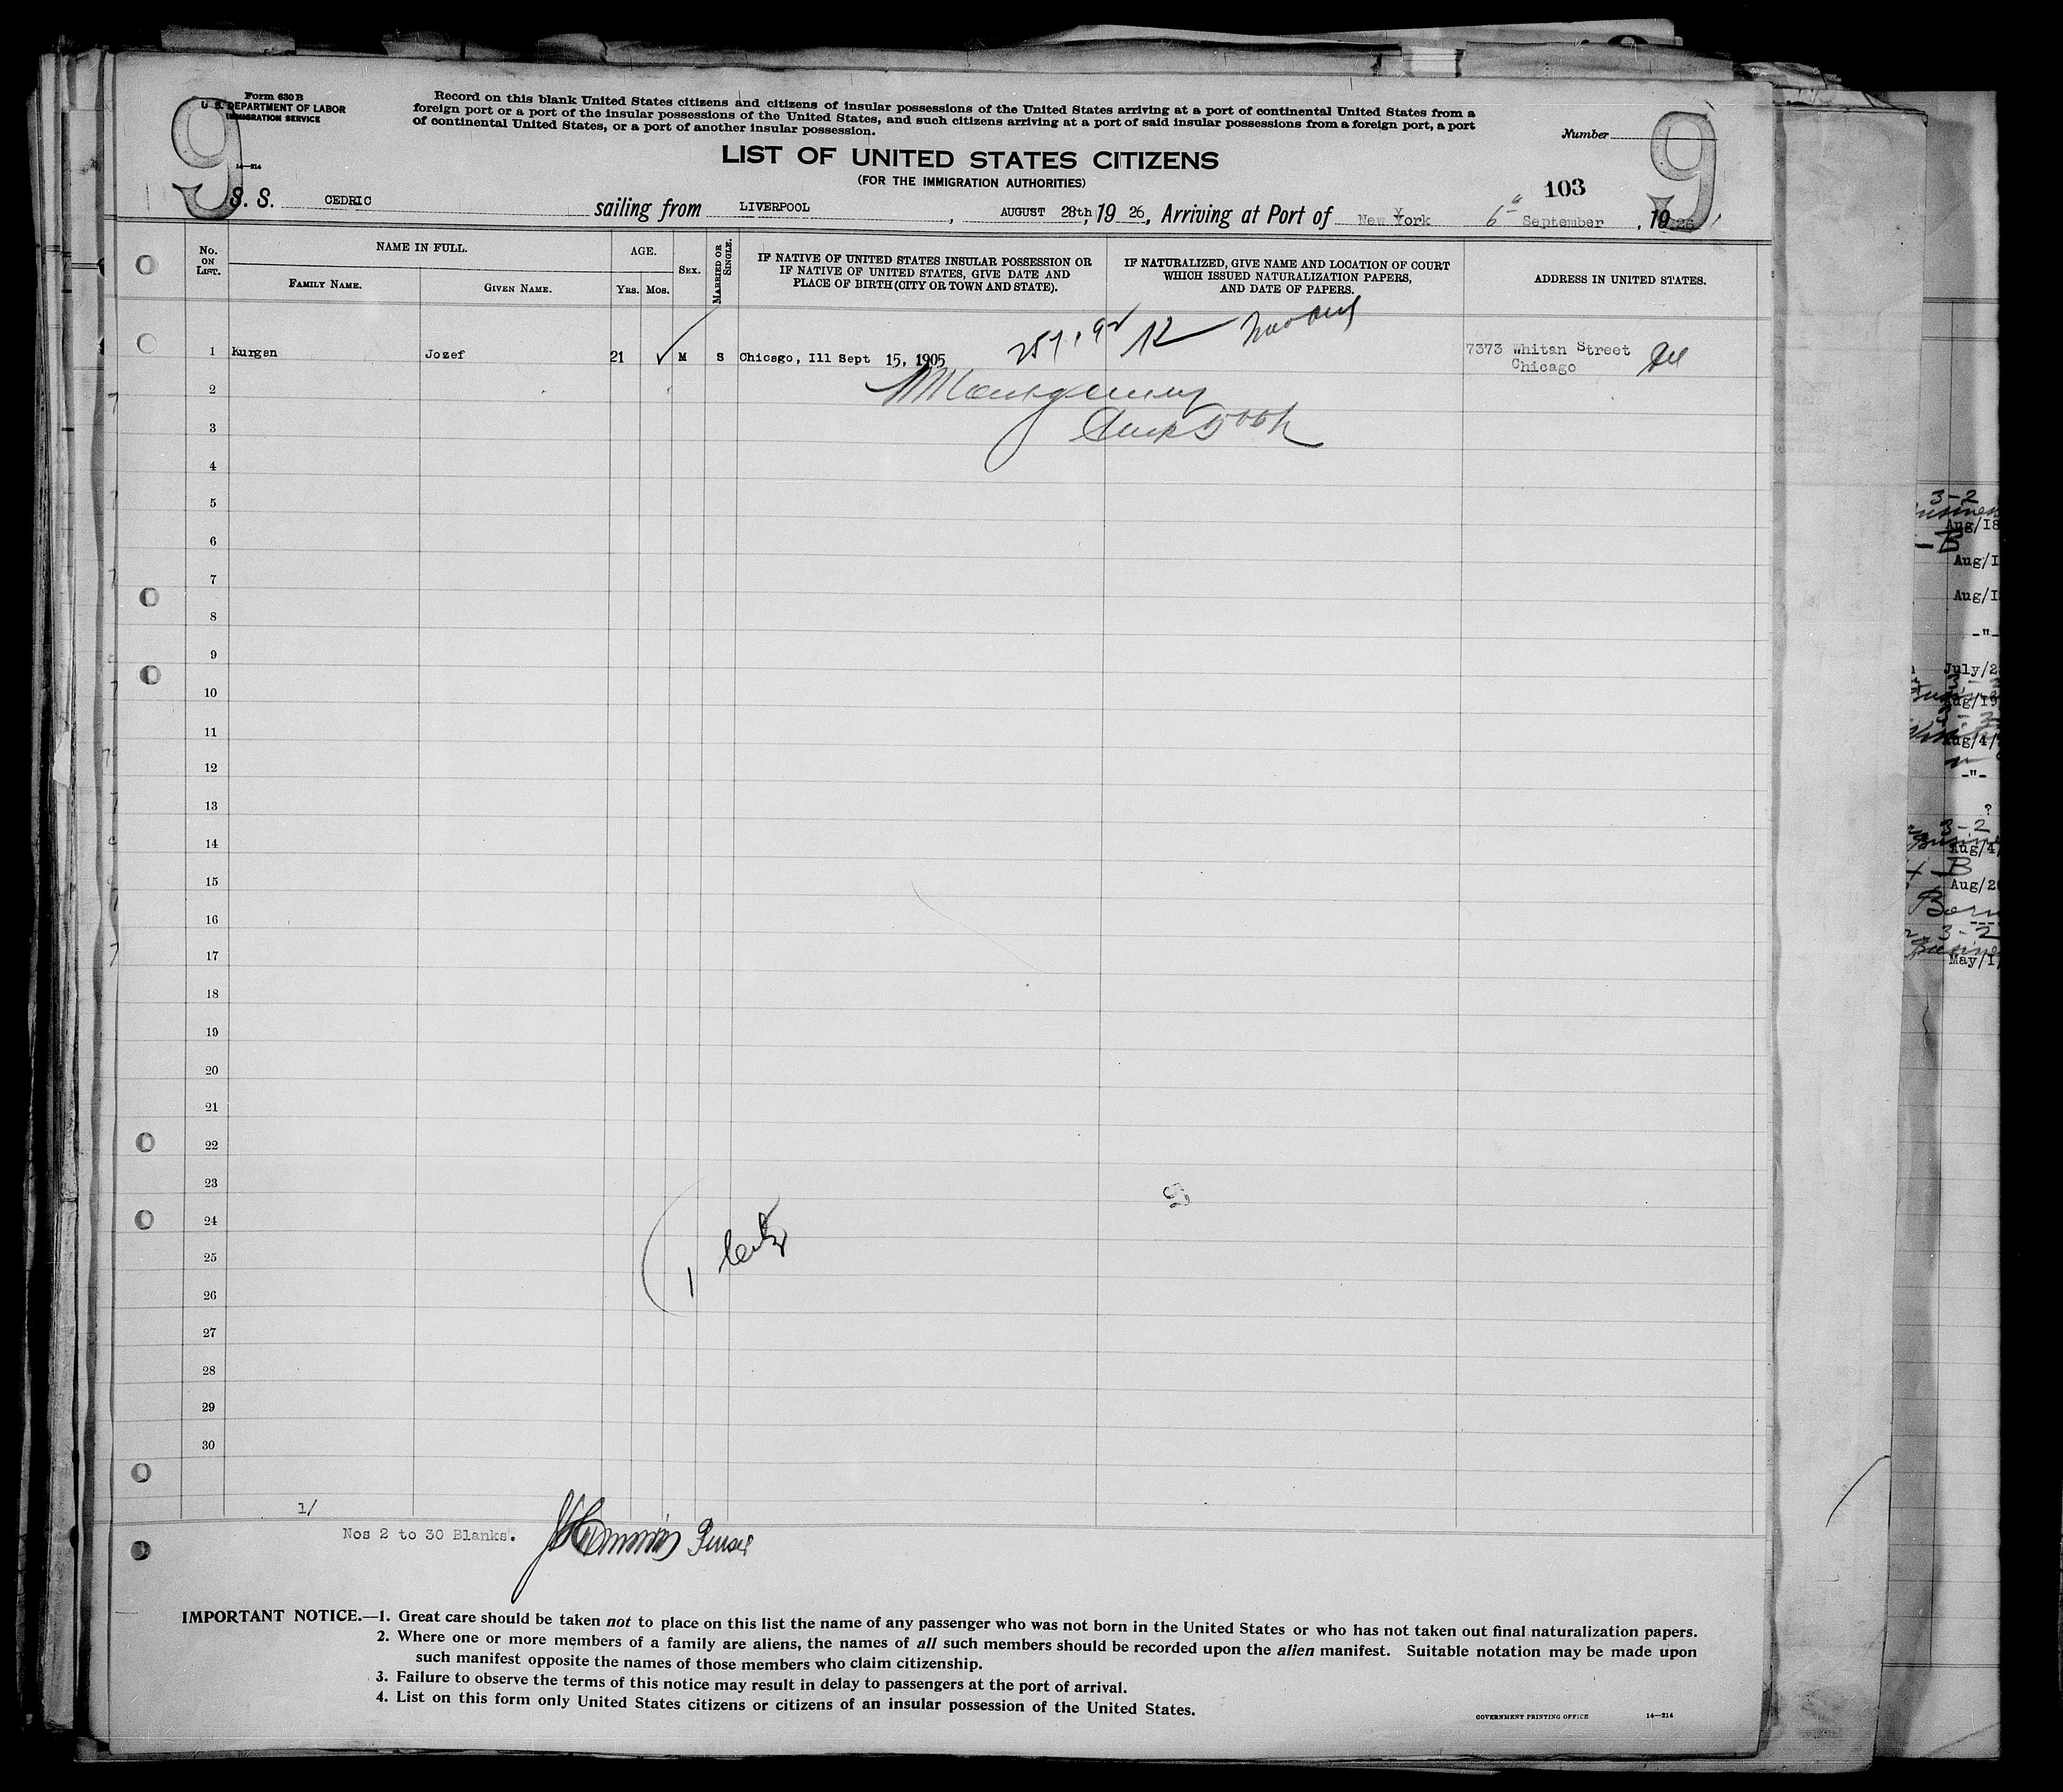 Form 630 B
U. S. DEPARTMENT OF LABOR
IMMIGRATION SERVICE
14—214
9
Record on this blank United States citizens and citizens of insular possessions of the United States arriving at a port of continental United States from a
foreign port or a port of the insular possessions of the United States, and such citizens arriving at a port of said insular possessions from a foreign port, a port
of continental United States, or a port of another insular possession.
Number
9
LIST OF UNITED STATES CITIZENS
(FOR THE IMMIGRATION AUTHORITIES)
103
S. S. CEDRIC sailing from LIVERPOOL, AUGUST 28th, 19 26, Arriving at Port of New York 6th September, 19 26
No. ON LIST.
NAME IN FULL.
FAMILY NAME.
GIVEN NAME.
AGE.
YRS.
MOS.
SEX.
MARRIED OR SINGLE.
IF NATIVE OF UNITED STATES INSULAR POSSESSION OR
IF NATIVE OF UNITED STATES, GIVE DATE AND
PLACE OF BIRTH (CITY OR TOWN AND STATE).
IF NATURALIZED, GIVE NAME AND LOCATION OF COURT
WHICH ISSUED NATURALIZATION PAPERS,
AND DATE OF PAPERS.
ADDRESS IN UNITED STATES.
1 Kurgan Jozef 21 M S Chicago, Ill Sept 15, 1905 7373 Whitan Street
Chicago Ill
2 Montgomery
3
4
5
6
7
8
9
10
11
12
13
14
15
16
17
18
19
20
21
22
23
24
25
26
27
28
29
30
1/
Nos 2 to 30 Blanks. Purser
IMPORTANT NOTICE.—1. Great care should be taken not to place on this list the name of any passenger who was not born in the United States or who has not taken out final naturalization papers.
2. Where one or more members of a family are aliens, the names of all such members should be recorded upon the alien manifest. Suitable notation may be made upon
such manifest opposite the names of those members who claim citizenship.
3. Failure to observe the terms of this notice may result in delay to passengers at the port of arrival.
4. List on this form only United States citizens or citizens of an insular possession of the United States.
GOVERNMENT PRINTING OFFICE 14—214
3-2
Aug/18
- B
Aug/1
Aug/1
-"-
July/2
Aug/19
Aug/4/
-"-
?
3-2
Aug/4/
+ - B
Aug/2
3-2
May/1